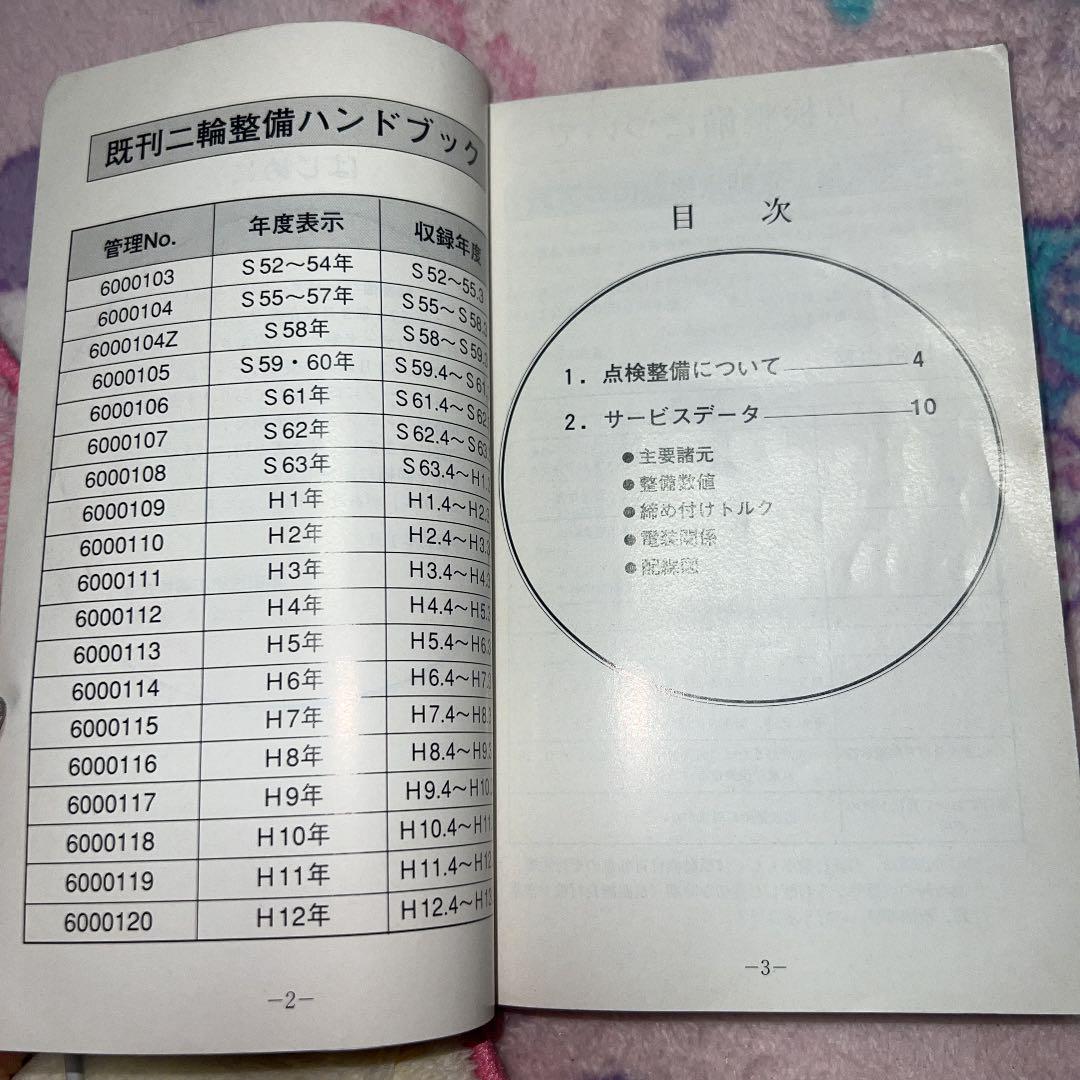 既刊二輪整備ハンドブック
管理No. 年度表示 収録年度
6000103 S52～54年 S52～55.3
6000104 S55～57年 S55～S58.3
6000104Z S58年 S58～S59.3
6000105 S59・60年 S59.4～S61.
6000106 S61年 S61.4～S62.
6000107 S62年 S62.4～S63.
6000108 S63年 S63.4～H1.
6000109 H1年 H1.4～H2.3
6000110 H2年 H2.4～H3.3
6000111 H3年 H3.4～H4.3
6000112 H4年 H4.4～H5.3
6000113 H5年 H5.4～H6.3
6000114 H6年 H6.4～H7.3
6000115 H7年 H7.4～H8.3
6000116 H8年 H8.4～H9.3
6000117 H9年 H9.4～H10.
6000118 H10年 H10.4～H11.
6000119 H11年 H11.4～H12
6000120 H12年 H12.4～H13
－2－
目次
1．点検整備について 4
2．サービスデータ 10
●主要諸元
●整備数値
●締め付けトルク
●電装関係
●配線図
－3－